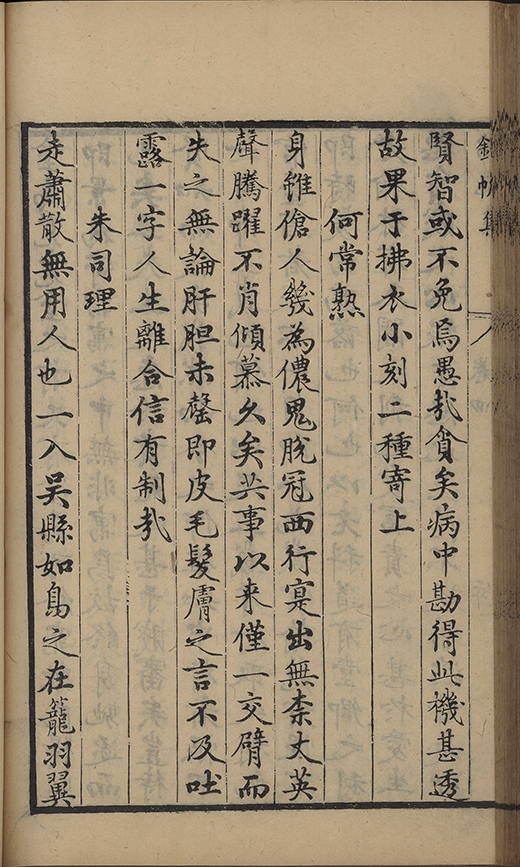 錦帆集
卷四
賢智或不免焉愚哉貪矣病中勘得此機甚透
故果于拂衣小刻二種寄上
何常熟
身雖傖人幾為儂鬼脫冠西行寔出無柰丈英
聲騰躍不肖傾慕久矣共事以来僅一交臂而
失之無論肝胆未罄即皮毛髮膚之言不及吐
露一字人生離合信有制哉
朱司理
走蕭散無用人也一入吳縣如鳥之在籠羽翼